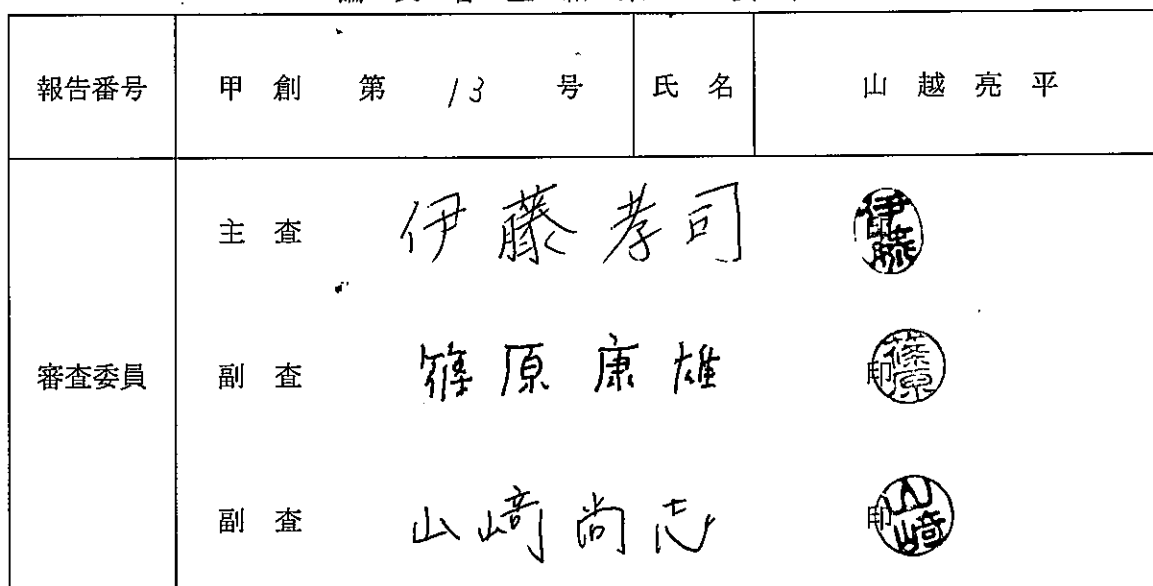 報告番号 甲 創 第 13 号 氏 名 山 越 亮 平
審査委員
主 査 伊藤孝司 印 伊藤
副 査 篠原康雄 印 篠原
副 査 山﨑尚志 印 山﨑